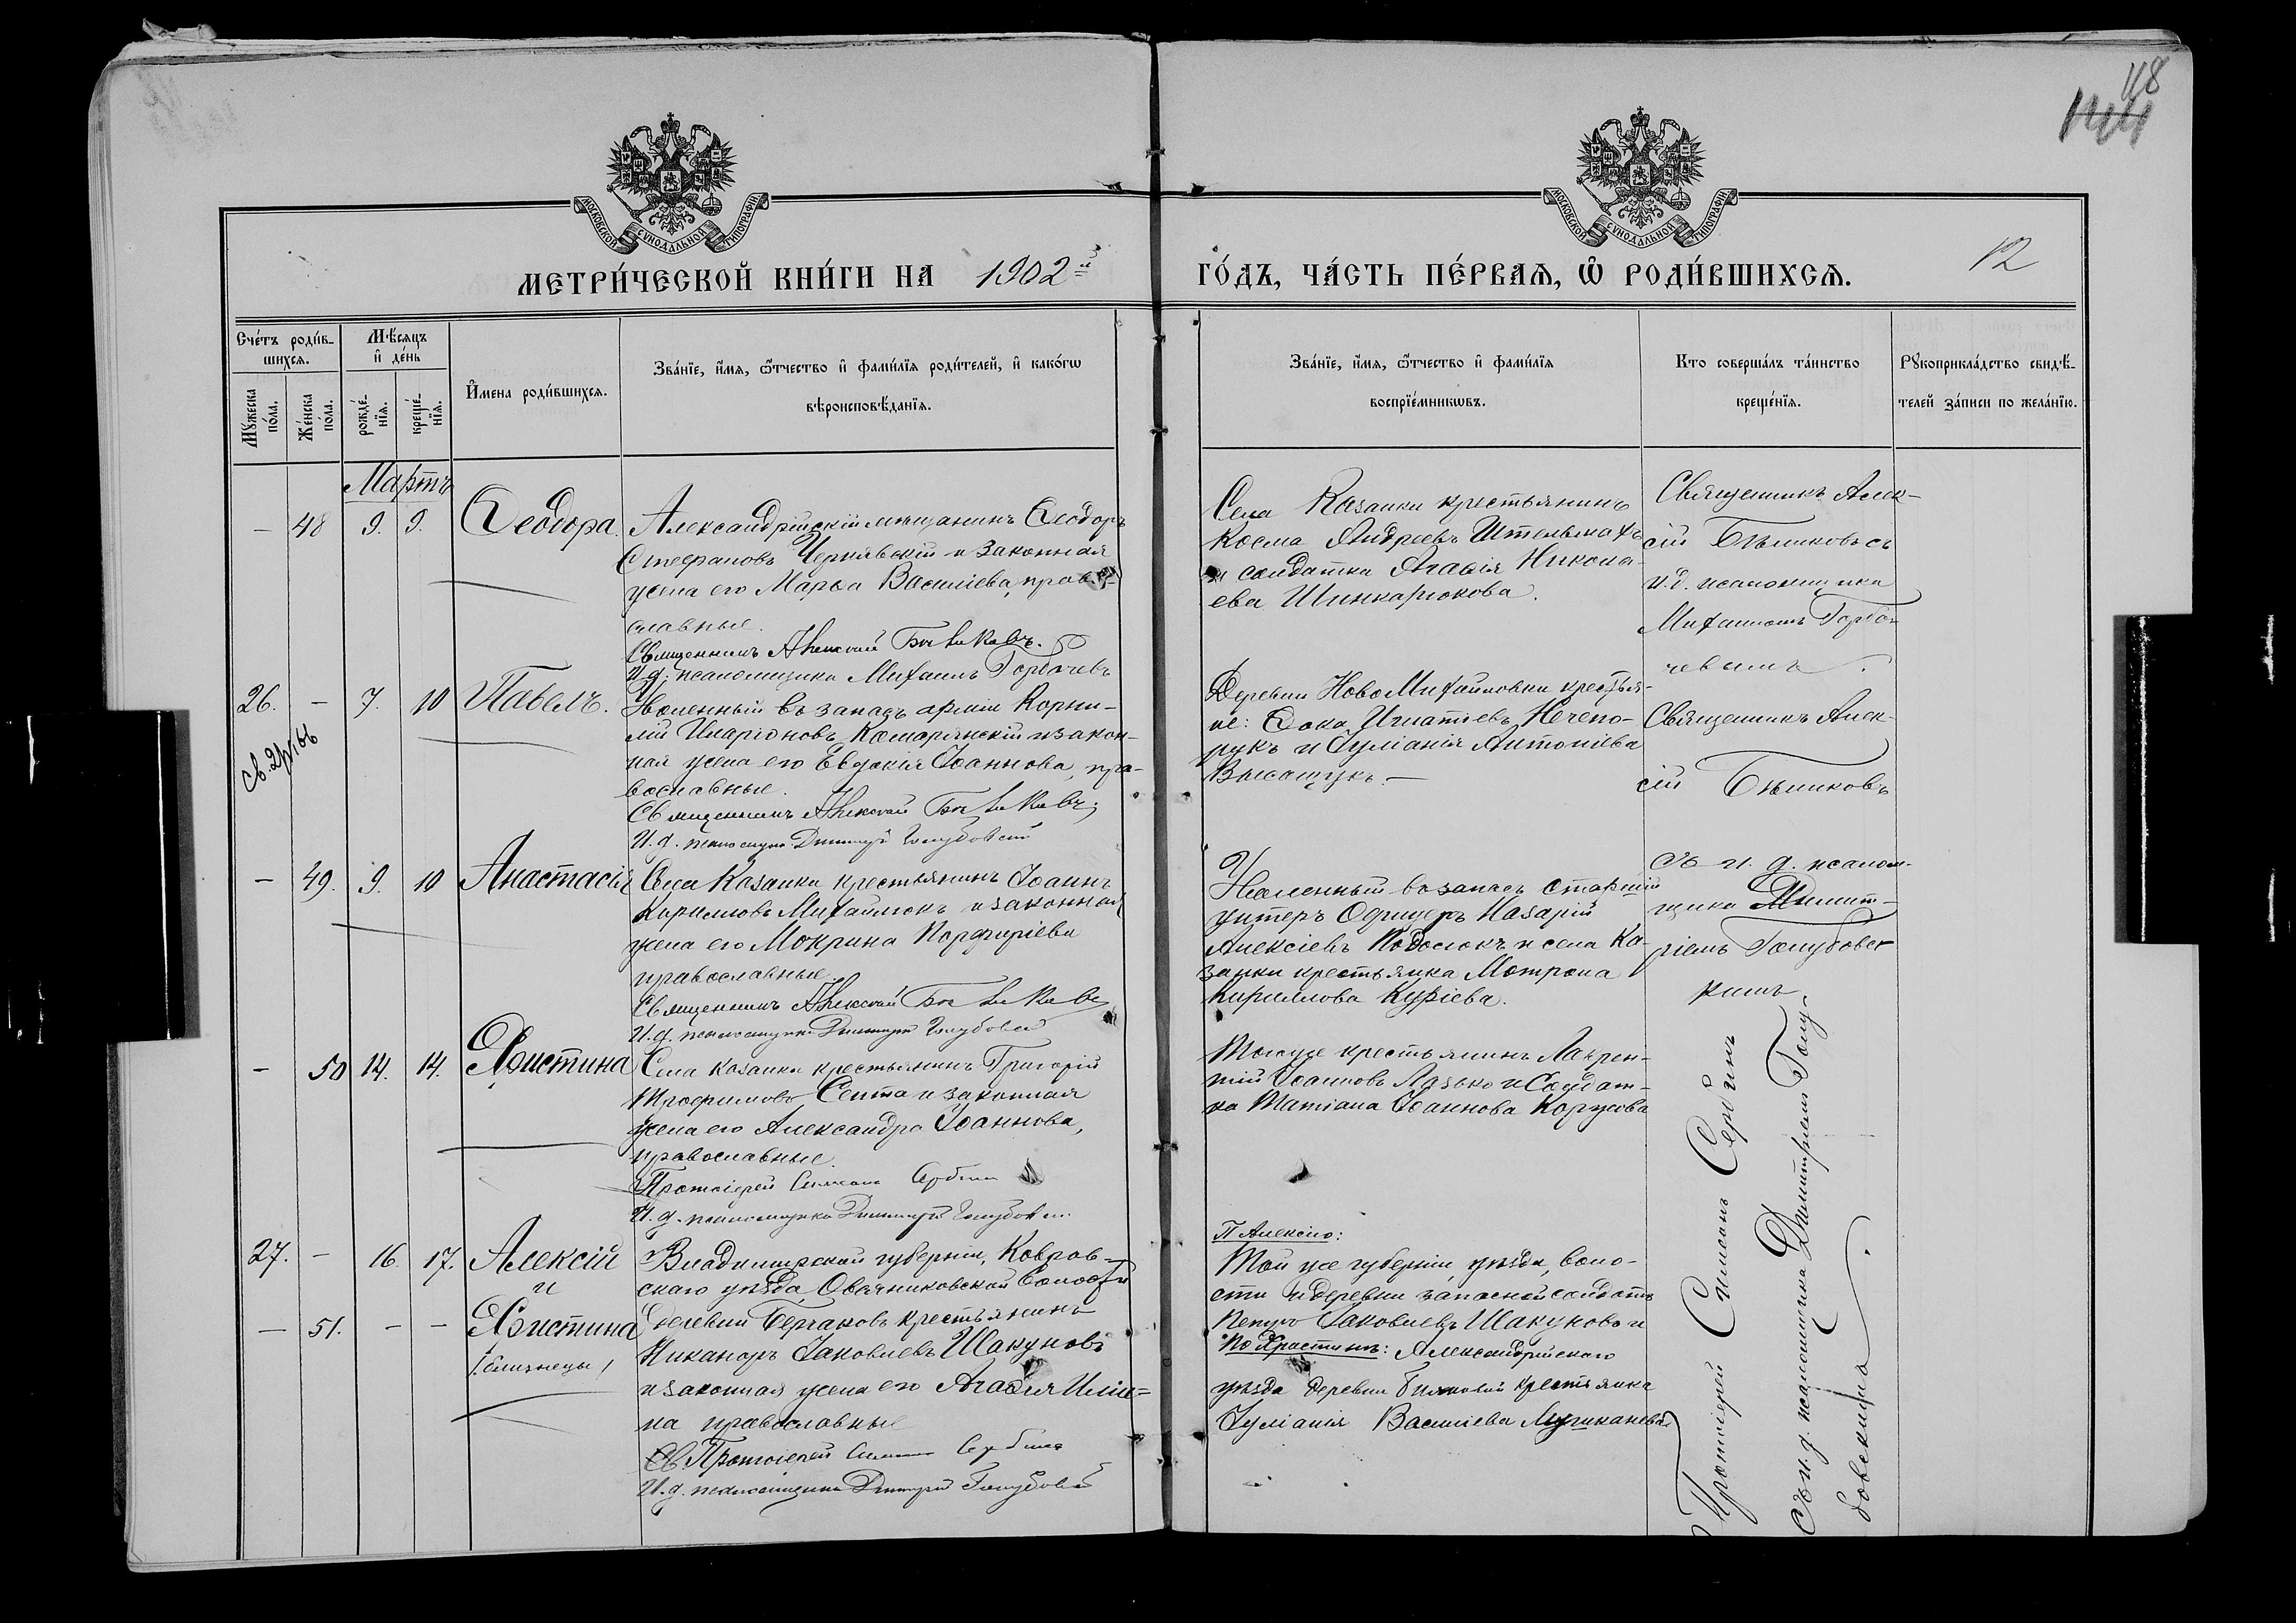 118
144
МОСКОВСКОЙ СѴНОДАЛЬНОЙ ТИПОГРАФІИ
МОСКОВСКОЙ СѴНОДАЛЬНОЙ ТИПОГРАФІИ
МЕТРИ́ЧЕСКОЙ КНИ́ГИ НА 1902й
ГО́ДЪ, ЧА́СТЬ ПЕ́РВАЯ, Ѡ РОДИ́ВШИХСЯ.
12
Счетъ роди́в-
шихся.
Мꙋжеска по́ла.
Же́нска по́ла.
Мѣсяцъ и де́нь
рожде́-нїя.
креще́-нїя.
И́мена роди́вшихся.
Зва́нїе, и́мя, ѻ́тчество и фами́лїя роди́телей, и како́гѡ
вѣроисповѣ́данїя.
Зва́нїе, и́мя, ѻ́тчество и фами́лїя
воспрїе́мникѡвъ.
Кто соверша́лъ та́инство
креще́нїя.
Рꙋкоприкла́дство свидѣ́-
телей за́писи по жела́нїю.
Мартъ
— 48 9. 9. Ѳеодора.
Александрійскій мѣщанинъ Ѳеодоръ
Стефановъ Чернявскій и законная
жена его Марѳа Василіева, право-
славные.
Священникъ Алексій Бѣликовъ.
И.д. псаломщика Михаилъ Горбачевъ
Села Казанки крестьянинъ
Косма Андреевъ Штельмахъ
и солдатка Агаѳія Никола-
ева Шинкарюкова.
Священникъ Алек-
сій Бѣликовъ съ
и.д. псаломщика
Михаиломъ Горба-
чевымъ.
26. — 7. 10 Павелъ.
св. 2 рубъ
Уволенный въ запасъ арміи Корни-
лій Иларіоновъ Комарянскій и закон-
ная жена его Евдокія Іоаннова, пра-
вославные.
Священникъ Алексій Бѣликовъ
И.д. псаломщика Димитрій Голубовскій
Деревни НовоМихайловки крестья-
не: Ѳока Игнатіевъ Нечепо-
рукъ и Іуліанія Антоніева
Священникъ Алек-
сій Бѣликовъ
— 49. 9. 10 Анастасія
Села Казанки крестьянинъ Іоаннъ
Кирилловъ Михайлюкъ и законная
жена его Мокрина Порфиріева
православные.
Священникъ Алексій Бѣликовъ
И.д. псаломщика Димитрій Голубовскій
Уволенный въ запасъ старшій
унтеръ Офицеръ Назарій
Алексіевъ Подолюкъ и села Ка-
занки крестьянка Мотрона
Кириллова Куріева.
съ и. д. псалом-
щика Димит-
ріемъ Голубовс-
кимъ
— 50 14. 14. Христина
Села Казанки крестьянинъ Григорій
Трофимовъ Септа и законная
жена его Александра Іоаннова,
православные.
Протоіерей Симеонъ Сербинъ
И.д. псаломщика Димитрій Голубовскій
Тогоже крестьянинъ Лаврен-
тій Іоанновъ Лазько и Солдат-
ка Татіана Іоаннова Коржова
27. — 16. 17. Алексій
и
— 51. — — Христина
/близнецы/
Владимирской губерніи, Ковров-
скаго уѣзда, Овсянниковской волости
деревни Берчаковъ крестьянинъ
Никаноръ Іаковлевъ Шакуновъ
и законная жена его Агаѳія Ильи-
на православные
Протоіерей Симеонъ Сербинъ
И.д. псаломщика Димитрій Голубовскій
П Алексію:
Той же губерніи, уѣзда, воло-
сти и деревни запасной солдатъ
Петръ Іаковлевъ Шакуновъ и
По Христинѣ: Александрійскаго
уѣзда деревни крестьянка
Іуліанія Василіева
Протоіерей Симеонъ Сербинъ
Съ и. д. псаломщика Димитріемъ Голу-
бовскимъ.